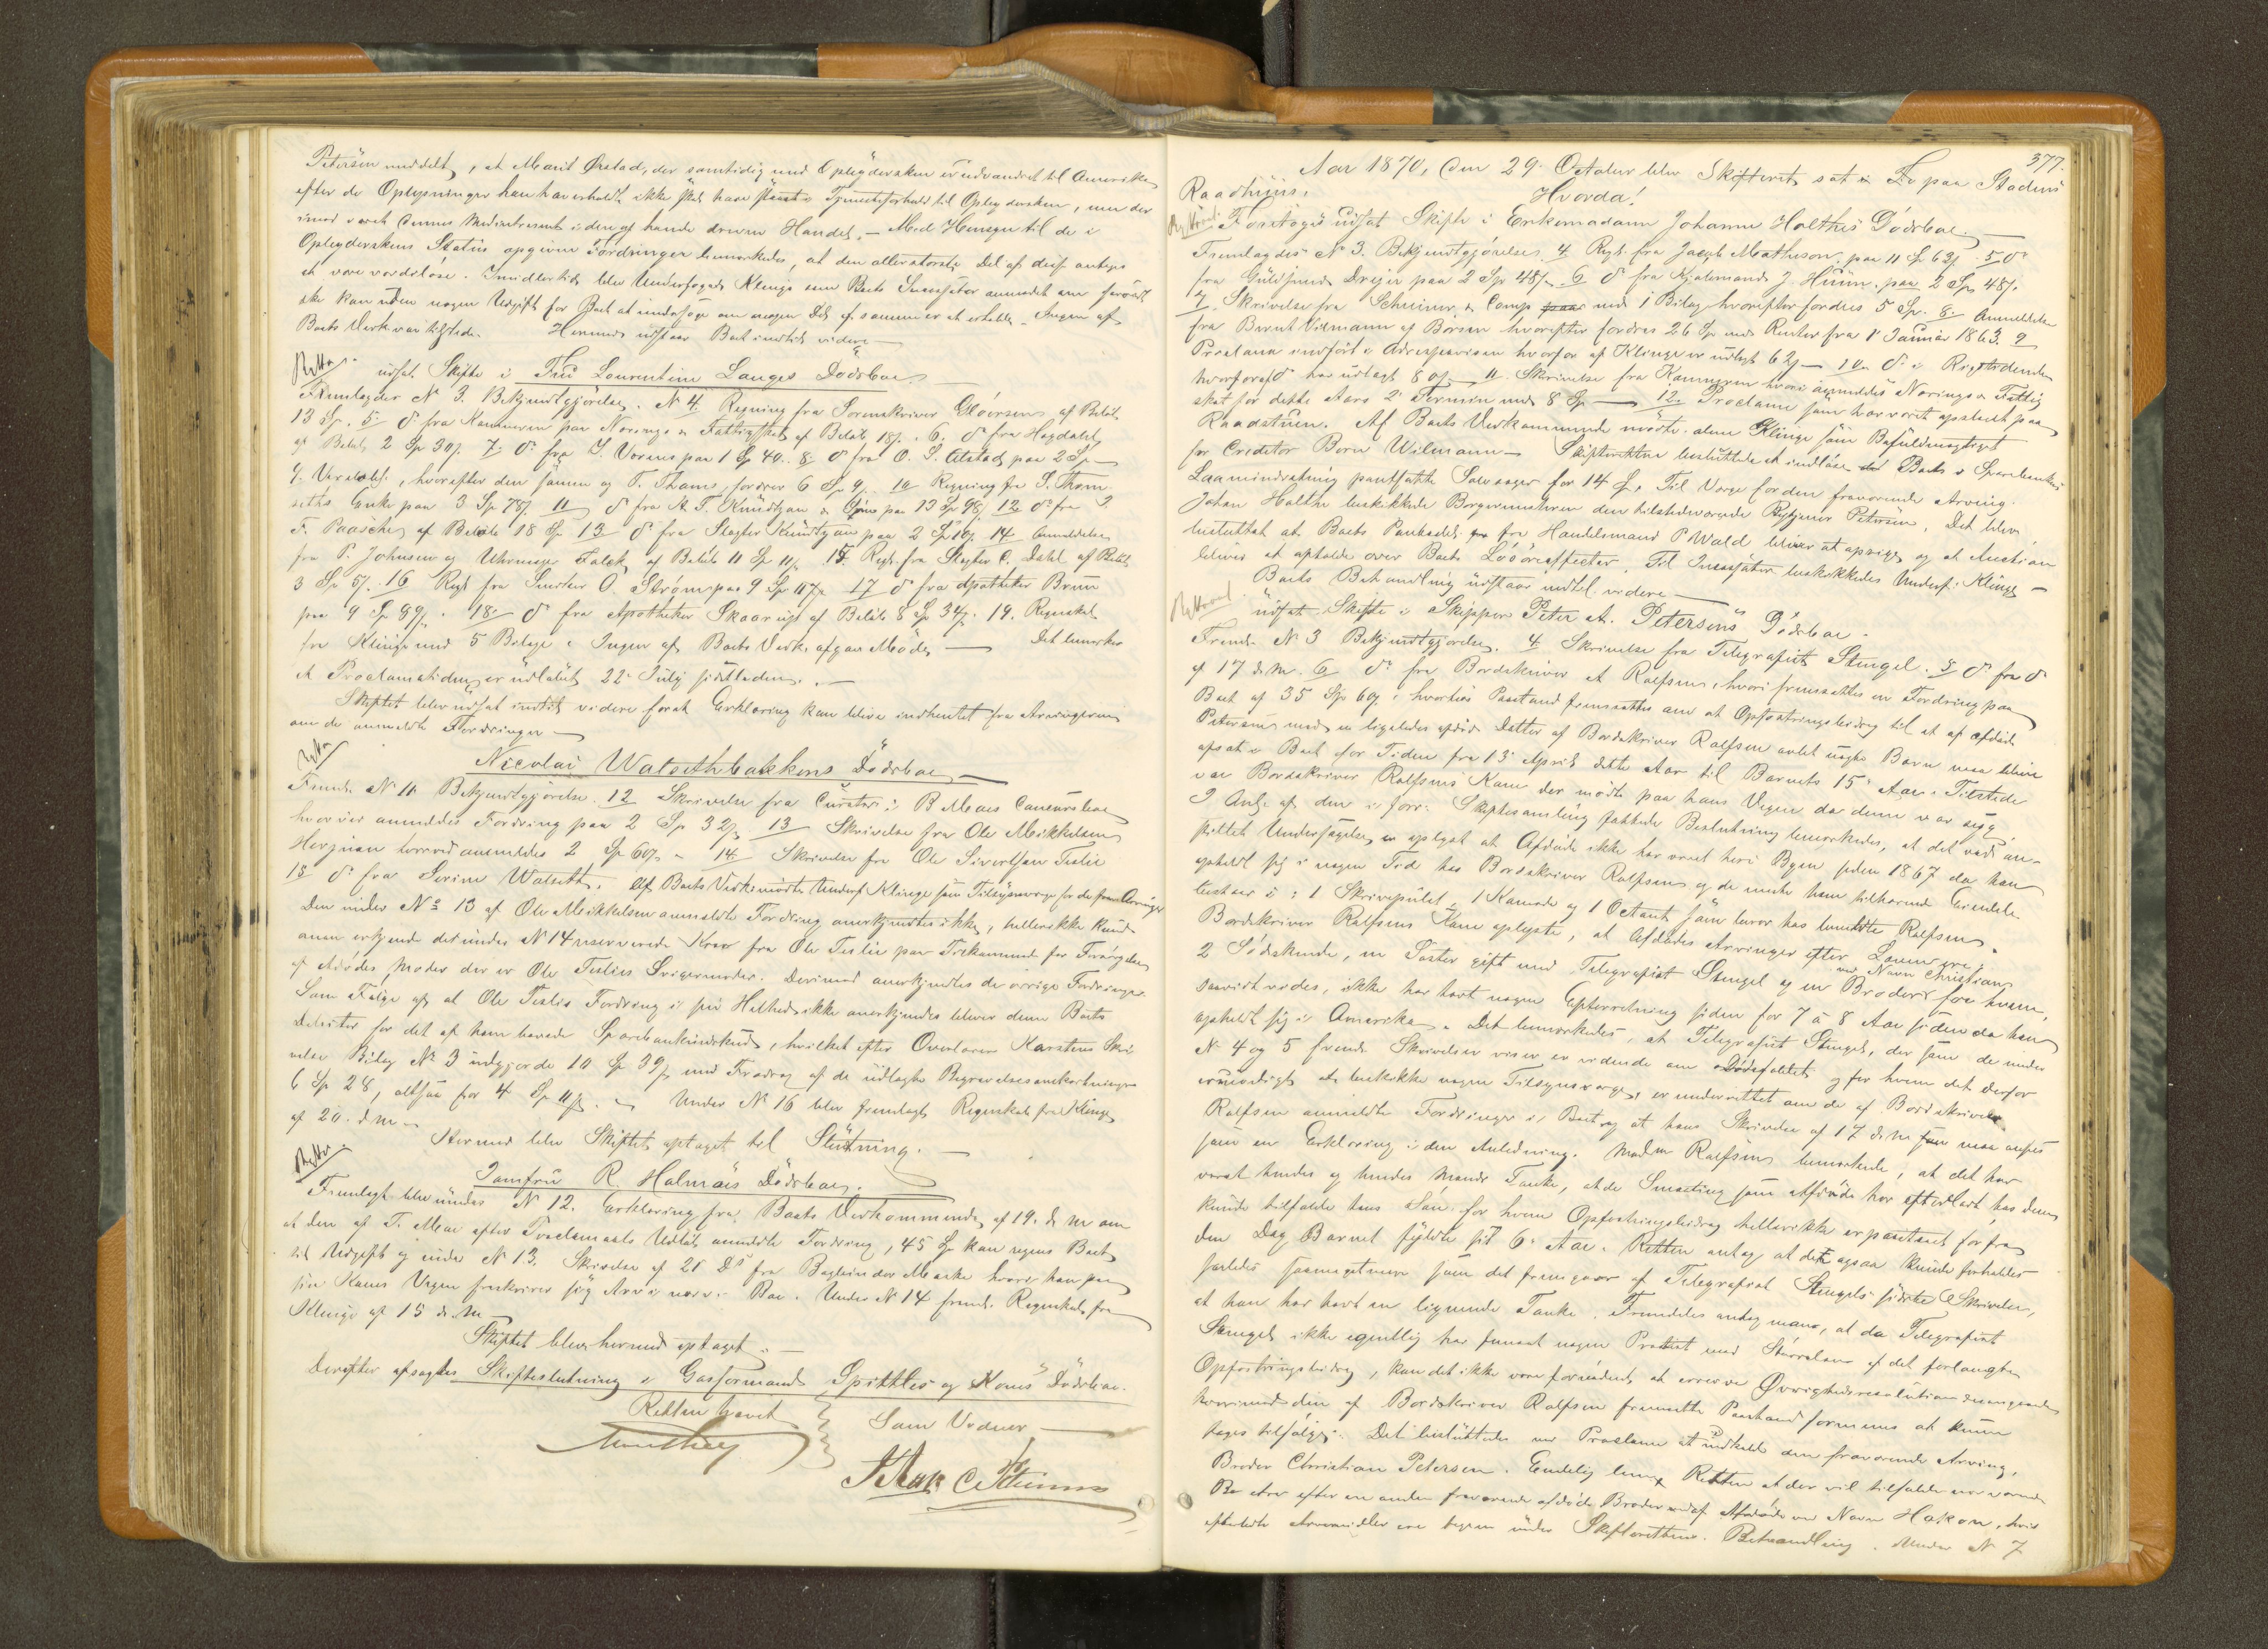 Petersen meddelt, at Marit Ørstad, der samtidig med Opbyderksen er udvandret til Amerika
efter de Oplysninger han har erholdt ikke skal have staaet i Tjenesteforhold til Opbydersken, men der
imod været dennes Medinteressent i den af hende drevne Handel. — Med Hensyn til de i
Opbyderskens Status opgivne Fordringer bemærkedes, at den allerstørste Del af disse antages
at være værdiløse. Imidlertid blev Underfoged Klinge som Boets Incassator anmodet om forsaavidt
ske kan uden nogen Udgift for Boet at undersøge om nogen Del af samme er at erholde. Ingen af
Boets Vedk. var tilstede. Hermed udstaar Boet indtil videre —
udsat Skifte i Fru Lourentine Langes Dødsboe.
Fremlagdes N 3. Bekjendtgjørelse. N 4. Regning fra Sorenskriver Gløersen af Beløb
13 Sp. 5 do fra Kæmneren paa Nærings & Fattigskat af Beløb 18 s. 6. do fra Hagdahl
af Beløb 2 Sp 30 s. 7. do fra I. Worens paa 1 Sp 40. 8. do fra O. S. Alstad paa 2 Sp
9. hvorefter den samme og T. Thams fordrer 6 Sp 9. 10 Regning fra S. Thom
seths Enke paa 3 Sp 78 s. 11 do fra A. T. Kundtzon & paa 13 Sp 98 s 12 do fra J.
F. Paasche af Beløb 18 Sp 13 do fra Slagter Kundtzon paa 2 Sp 16 s. 14 Anmeldelse
fra P. Johnsen og Uhrmager Falck af Beløb 11 Sp 11 s. 15. Regn. fra Slagter C. Dahl af Beløb
3 Sp 57. 16 Regn fra Snedker O. Strøm paa 9 Sp 117 s 17 do fra Apotheker Bruun
paa 4 Sp 89 s. 18. do fra Apotheker Skaarup af Beløb 8 Sp 34 s. 19. Regnskab
fra Klinge med 5 Bilage. Ingen af Boets Vedk. afgav Møde — Det bemærkes
at Proclamatiden er udløbet 22 Juli sidstleden. —
Skiftet blev udsat indtil videre forat Erklæring kan blive indhentet fra Arvingerne
om de anmeldte Fordringer —
Nicolai Watsethbakkens Dødsboe —
Fremk. N 11. Bekjendtgjørelse. 12 Skrivelse fra Curator i B Moes Concursboe
hvorved anmeldes Fordring paa 2 Sp 32 s 13 Skrivelse fra Ole Mikkelsen
Herjuan hvorved anmeldes 2 Sp 60 s. 14 Skrivelse fra Ole Sivertsen Teslie
15 do fra Serine Watseth. Af Boets Vedk. mødte Underf Klinge som Tilsynsværge for de frav. Arvinger
Den under No 13 af Ole Mikkelsen anmeldte Fordring anerkjendtes ikke, hellerikke kunde
man erkjende det under N 14 reserverede Krav fra Ole Teslie paa for Forsørgelse
af Afdødes Moder der er Ole Teslies Svigermoder. Derimod anerkjendtes de øvrige Fordringer.
Som Følge af at Ole Teslies Fordring i sin Helhed ikke anerkjendes bliver denne Boets
Debitor for det af ham hævede Sparebankindskud, hvilket efter Overlærer Karstens Skri
velse Bilag No 3 udgjorde 10 Sp 39 s med Fradrag af de udlagte Begravelsesomkostninger
6 Sp 28, altsaa for 4 Sp 11 s. — Under No 16 blev fremlagt Regnskab fra Klinge
af 20. d M —
Hermed blev Skiftet optaget til Slutning. —
Jomfru R. Halmøis Dødsboe.
Fremlagt blev under N 12. Erklæring fra Boets Vedkommende af 19. d M om
at den af T. Moe efter Proclamaets Udløb anmeldte Fordring, 45 Sp kan regnes Boet
til Udgift og under N 13. Skrivelse af 21 Ds fra Bogbinder Marke hvori han paa
sin Kones Vegne fraskriver sig Arv i nærv. Boe. Under N 14 fremk. Regnskab fra
Klinge af 15 d. M —
Skiftet blev hermed optaget. —
Derefter afsagdes Skifteslutning i Gasformand Spittles og Kones Dødsboe.
Retten hævet
Som Vidner —
377.
Aar 1870, den 29. October blev Skifteret sat i Lo paa Stadens
Raadhuus,
Hvorda!
Foretoges udsat Skifte i Enkemadame Johanne Holthes Dødsboe. —
Fremlagdes N 3. Bekjendtgjørelse. 4 Regn. fra Jacob Matheson paa 11 Sp 63 s. 5 do
fra Guldsmed Dreyer paa 2 Sp 48 s. 6 do fra Kjøbmand J. Huun. paa 2 Sp 48 s.
7. Skrivelse fra Schreiner & Comp med 1 Bilag hvorefter fordres 5 Sp. 8. Anmeldelse
fra Bernt Vilmann af Børsen hvorefter fordres 26 Sp med Renter fra 1 Januar 1863. 9
Proclama indført i Adresseavisen hvorfor af Klinge er udlagt 62 s — 10. do i Rigstidende
hvorfor afd har udlagt 80 s — 11. Skrivelse fra Kæmneren hvori anmeldes Nærings & Fattig
skat for dette Aars 2 Termin med 8 Sp — 12. Proclama som har været opslaaet paa
Raadstuen. Af Boets Vedkommende mødte alene Klinge som Befuldmægtiget
for Creditor Børre Wilmann — Skifteretten besluttede at indløse Boets i Sparebankens
Laaneindretning pantsatte Sølvsager for 14 Sp. Til Værge for den fraværende Arving
Johan Holthe beskikkede Borgermesteren den tilstedeværende Byskriver Petersen. Det blev
besluttet at Boets Panteobl. fra Handelsmand P Wold bliver at opsige og at Auction
bliver at afholde over Boets Løsøreeffecter. Til Incassator beskikkedes Underf. Klinge —
Boets Behandling udstaar indtil videre —
udsat Skifte i Skipper Peter A. Petersens Dødsboe —
Fremk. No 3 Bekjendtgjørelse. 4 Skrivelse fra Telegrafist Stengel. 5 do fra do
af 17 d. M. 6 do fra Bordskriver A Rolfsen, hvori fremsattes en Fordring paa
Boet af 35 Sp 60 s, hvorhos Paastand fremsattes om at Opfostringsbidrag til et af afdøde
Petersen med en ligeledes afdød Datter af Bordskriver Rolfsen avlet uægte Barn maa blive
afsat i Boet for Tiden fra 13 April dette Aar til Barnets 15 Aar. Tilstede
var Bordskriver Rolfsens Kone der mødte paa hans Vegne da denne var syg
I Anl. af den i forr. Skiftesamling fattede Beslutning bemærkedes, at det ved an-
stillet Undersøgelse er oplyst at Afdøde ikke har været her i Byen siden 1867 da han
opholdt sig i nogen Tid hos Bordskriver Rolfsen og de eneste ham tilhørende Eiendele
bestaar i: 1 Skrivepulst, 1 Kamode og 1 Octant som beror hos bemeldte Rolfsen.
Bordskriver Rolfsens Kone oplyste, at Afdødes Arvinger efter Loven ere:
2 Sødskende, en Søster gift med Telegrafist Stengel og en Broder ved Navn Christian fra hvem,
saavidt vides, ikke har havt nogen Efterretning siden for 7 à 8 Aar siden da han
opholdt sig i Amerika. Det bemærkedes, at Telegrafist Stengel, der som de under
N 4 og 5 fremk. Skrivelser viser er vidende om Dødsfaldet og for hvem det derfor
er unødigt at beskikke nogen Tilsynsværge, er underrettet om de af Bordskriver
Rolfsen anmeldte Fordringer i Boet og at hans Skrivelse af 17 d. M. maa ansees
som en Erklæring i den Anledning. Madm Rolfsen bemærkede, at det har
været hendes og hendes Mands Tanke, at de Smaating som Afdøde har efterladt hos dem
kunde tilfalde hans Søn for hvem Opfostringsbidrag hellerikke er paastaaet for fra
den Dag Barnet fyldte sit 6 Aar. Retten antog at dette ogsaa kunde forholdes
saaledes saameget mere som det fremgaar af Telegrafist Stengels sidste Skrivelse,
at han har havt en lignende Tanke. Fremdeles antog man, at da Telegrafist
Stengel ikke egentlig har fremsat nogen Protest mod Størrelsen af det forlangte
Opfostringsbidrag, kan det ikke være fornødent at erverve Øvrighedsresolution desangaaende
hvorimod den af Bordskriver Rolfsen fremsatte Paastand formenes at kunne
tages tilfølge. Det besluttedes ved Proclama at indkalde den fraværende Arving,
Broder Christian Petersen. Endelig bem. Retten at der vil tilfalde nærværende
Bo Arv efter en anden fraværende afdød Broder af Afdøde ved Navn Hakon, hvis
efterladte Arvemidler ere tagen under Skifterettens Behandling. Under N 7